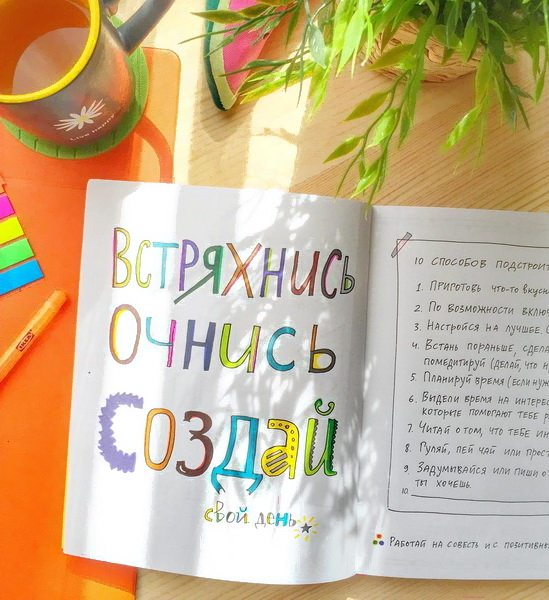 Live happy
ВСТРЯХНИСЬ
ОЧНИСЬ
СОЗДАЙ
свой день
10 СПОСОБОВ
1. ПРИГОТОВЬ ЧТО-ТО
2. ПО ВОЗМОЖНОСТИ
3. НАСТРОЙСЯ НА ЛУЧШЕЕ.
4. ВСТАНЬ ПОРАНЬШЕ,
ПОМЕДИТИРУЙ (ДЕЛАЙ, ЧТО
5. ПЛАНИРУЙ ВРЕМЯ (ЕСЛИ
6. ВЫДЕЛИ ВРЕМЯ НА
КОТОРЫЕ ПОМОГАЮТ ТЕБЕ
7. ЧИТАЙ О ТОМ, ЧТО ТЕБЕ
8. ГУЛЯЙ, ПЕЙ ЧАЙ ИЛИ
9. ЗАДУМЫВАЙСЯ ИЛИ ПИШИ
ТЫ ХОЧЕШЬ.
10.
РАБОТАЙ НА СОВЕСТЬ И С